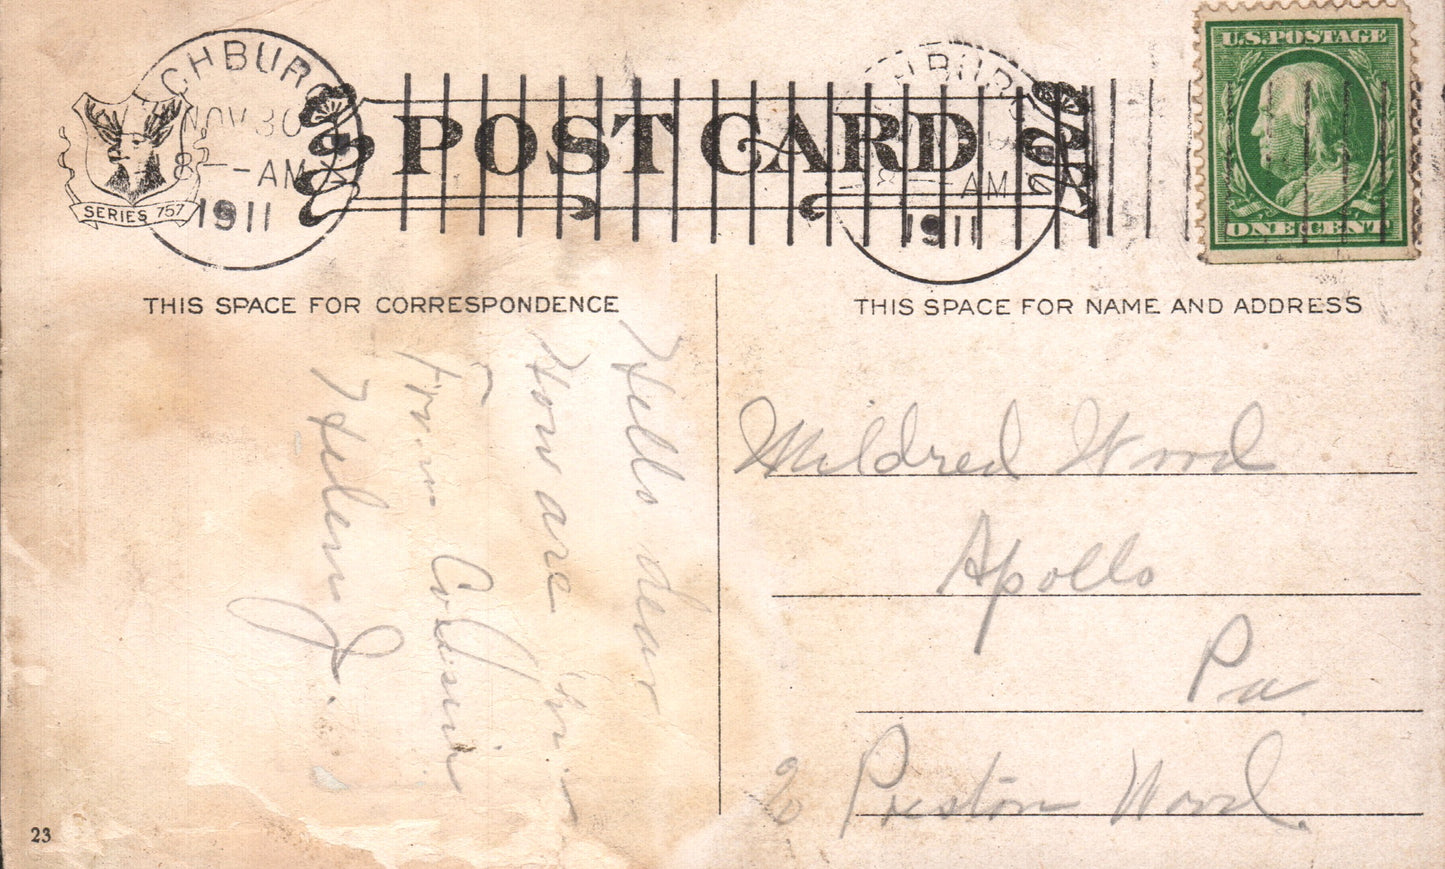 CHBURG
NOV 30
8--AM
1911
SERIES 757
POST CARD
CHBURG
8--AM
1911
U.S. POSTAGE
ONE CENT
THIS SPACE FOR CORRESPONDENCE
THIS SPACE FOR NAME AND ADDRESS
Hello dear
How are
From Cousin
Helen J.
Mildred Wood
Apollo
Pa
% Preston Wood.
23